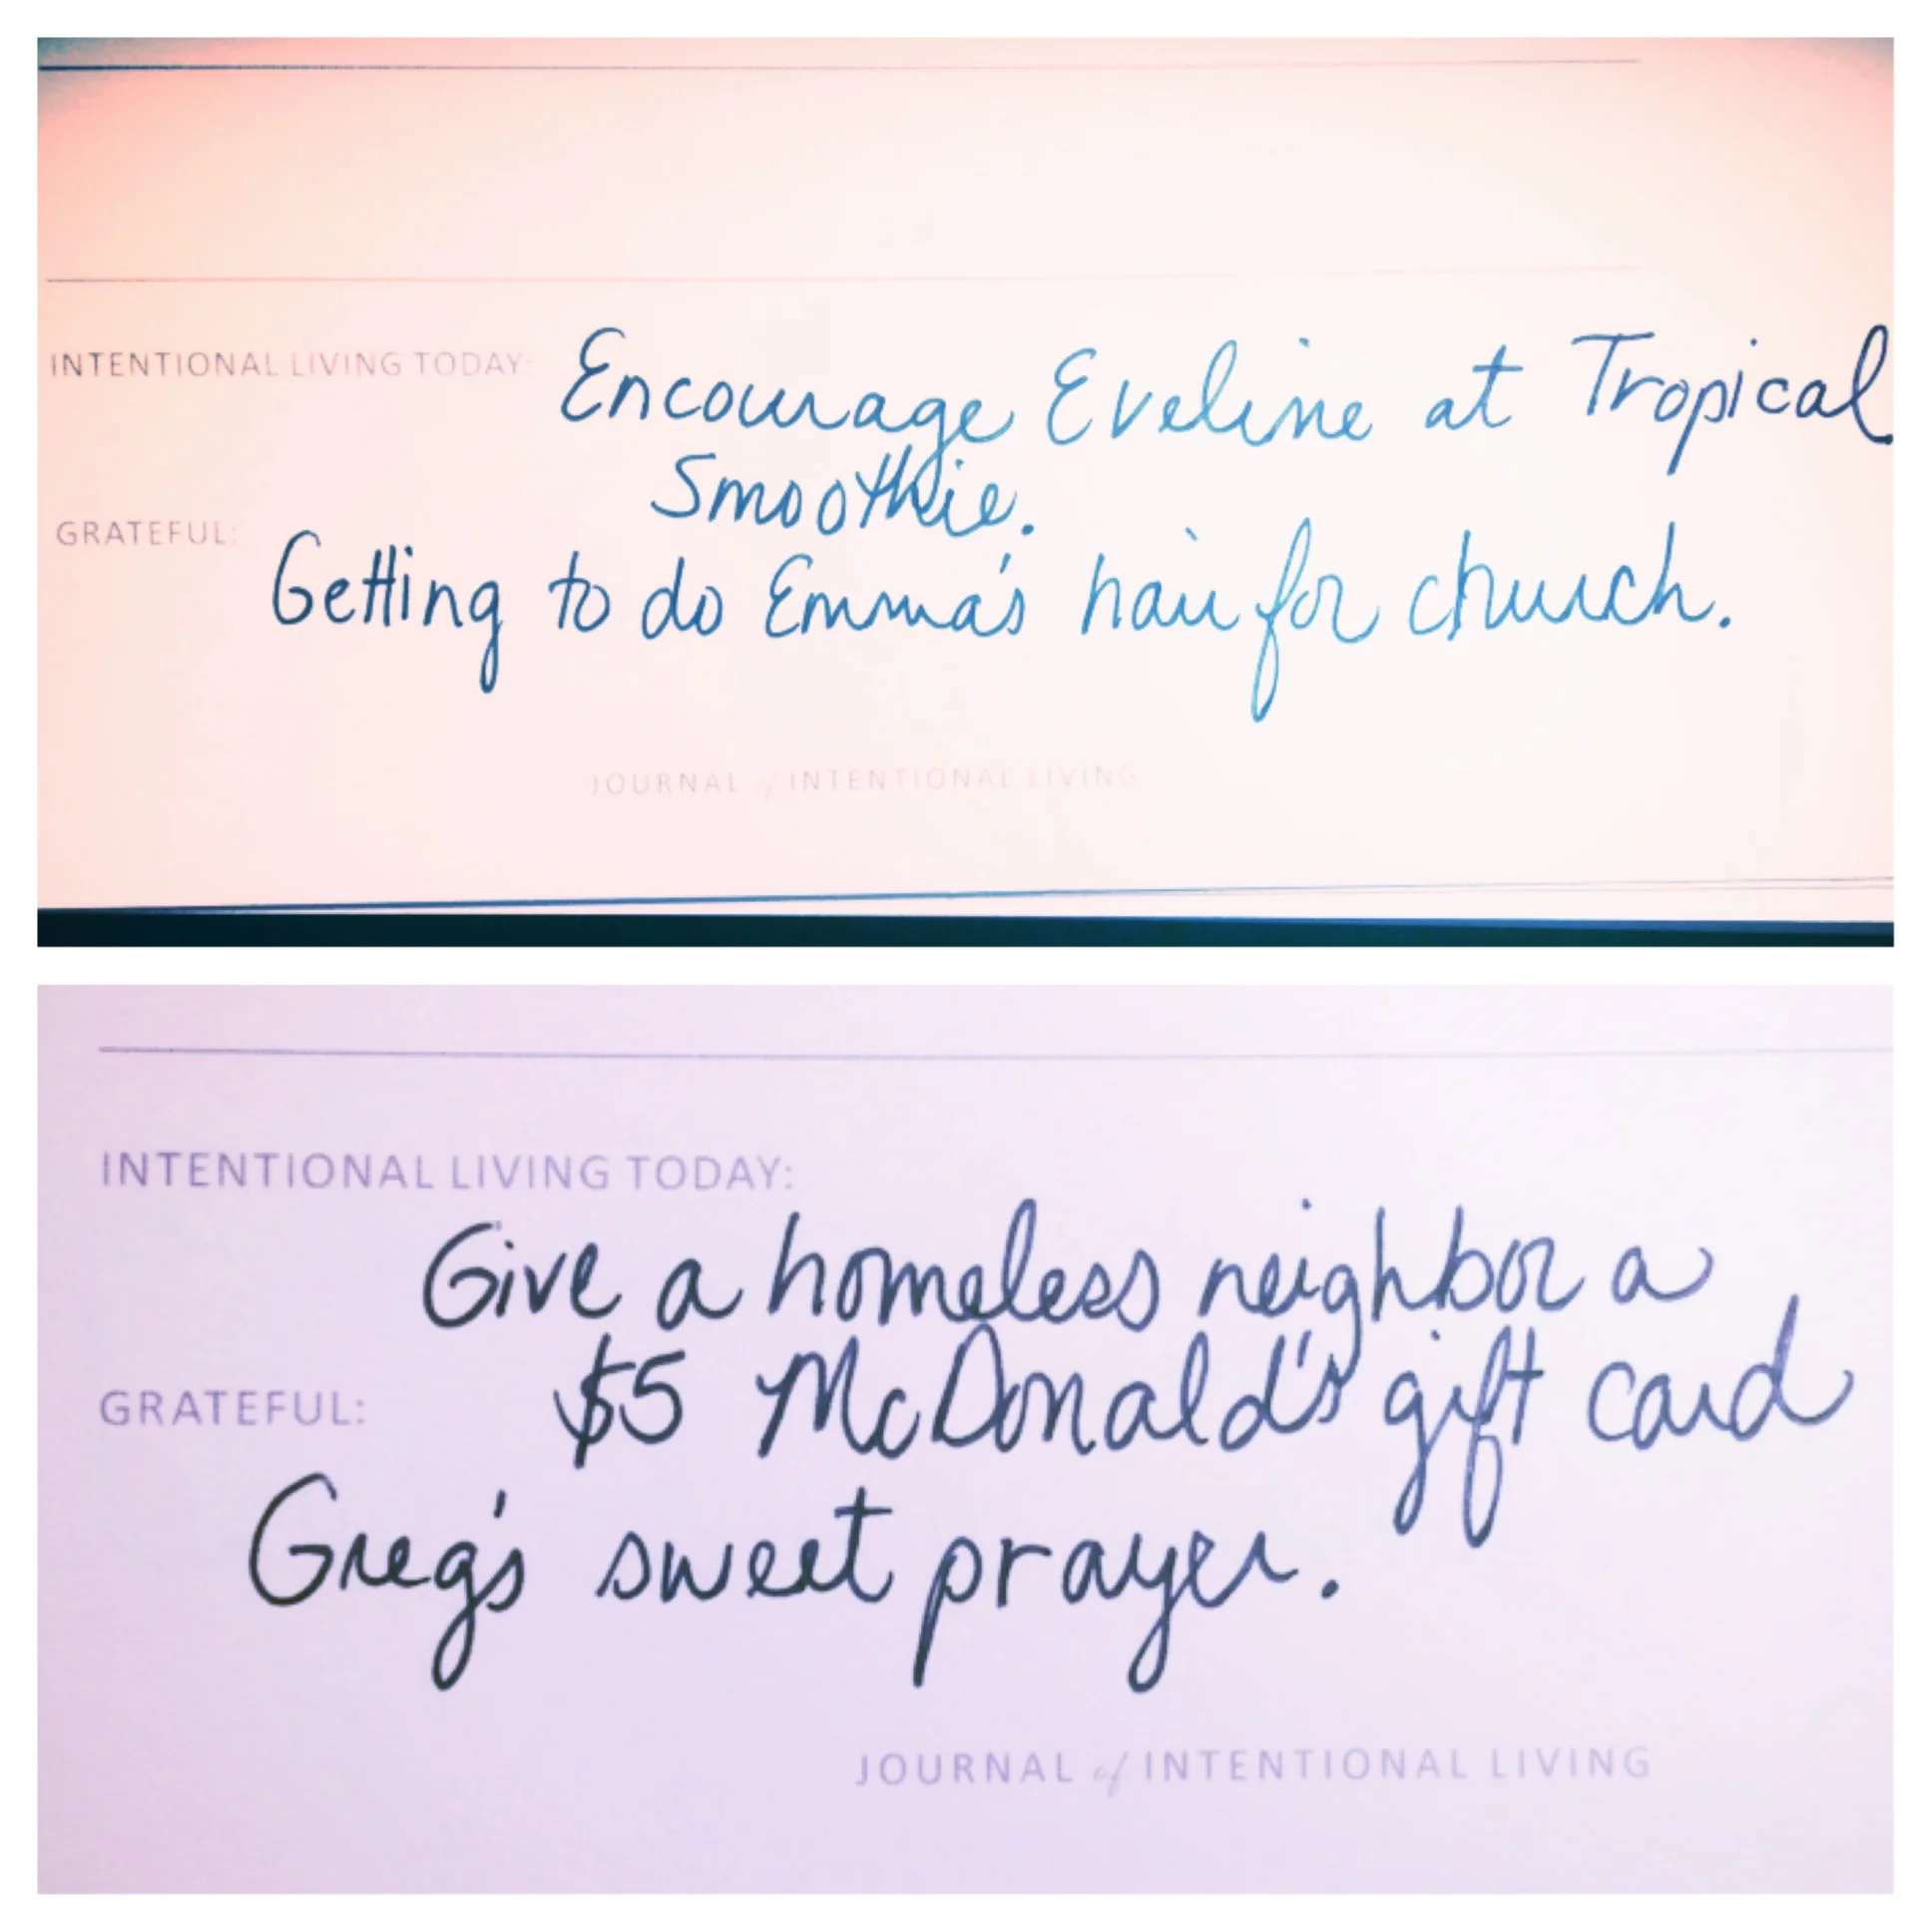 INTENTIONAL LIVING TODAY: Encourage Eveline at Tropical
Smoothie.
GRATEFUL:
Getting to do Emma's hair for church.
JOURNAL of INTENTIONAL LIVING
INTENTIONAL LIVING TODAY:
Give a homeless neighbor a
$5 McDonald's gift card
GRATEFUL:
Greg's sweet prayer.
JOURNAL of INTENTIONAL LIVING